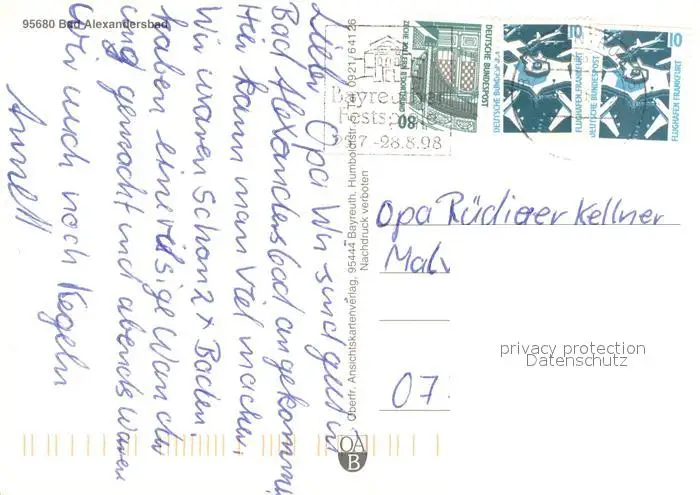 95680 Bad Alexandersbad
Liebe Opa Wir sind gut in
Bad Alexandersbad angekommen
Hier kann man viel machen.
Wir waren schon 2x Baden.
haben eine riesige Wander
ung gemacht und abends waren
Wir auch noch Kegeln
Annett
Oberfr. Ansichtskartenverlag, 95444 Bayreuth, Humboldtstr. 0921/64126
Nachdruck verboten
OA
B
Bayreuther
Festspiele
-28.8.98
80
DEUTSCHE BUNDESPOST
10
DEUTSCHE BUNDESPOST
FLUGHAFEN FRANKFURT
10
DEUTSCHE BUNDESPOST
FLUGHAFEN FRANKFURT
Opa Rüdiger Kellner
07
privacy protection
Datenschutz